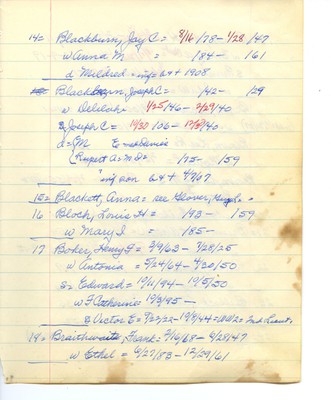 14= Blackburn, Jay C = 8/16/78 - 1/28/47
w Anna M = 184- 161
d Mildred = inf = 6y+ 1908
Blackburn, Joseph = 142- 129
w Delilah = 1/25/46 - 2/29/40
s Joseph C = 10/30/06 - 12/8/40
d = M E =
Rupert A = M D = 175- 159
15= Blackett, Anna = see Glover,
16 Bloch, Louis H = 193- 159
w Mary I = 185-
17 Boker, Henry F = 2/9/63 - 7/28/25
w Antonia = 5/24/64 - 4/30/50
s = Edward = 10/1/94 - 10/5/50
w F Catherine 10/3/95 -
s Victor E = 9/22/22 - 10/8/44 = WW2 = 2nd Lieut.
18= Braithwaite, Frank = 7/16/68 - 6/28/47
w Ethel = 6/27/83 - 12/29/61